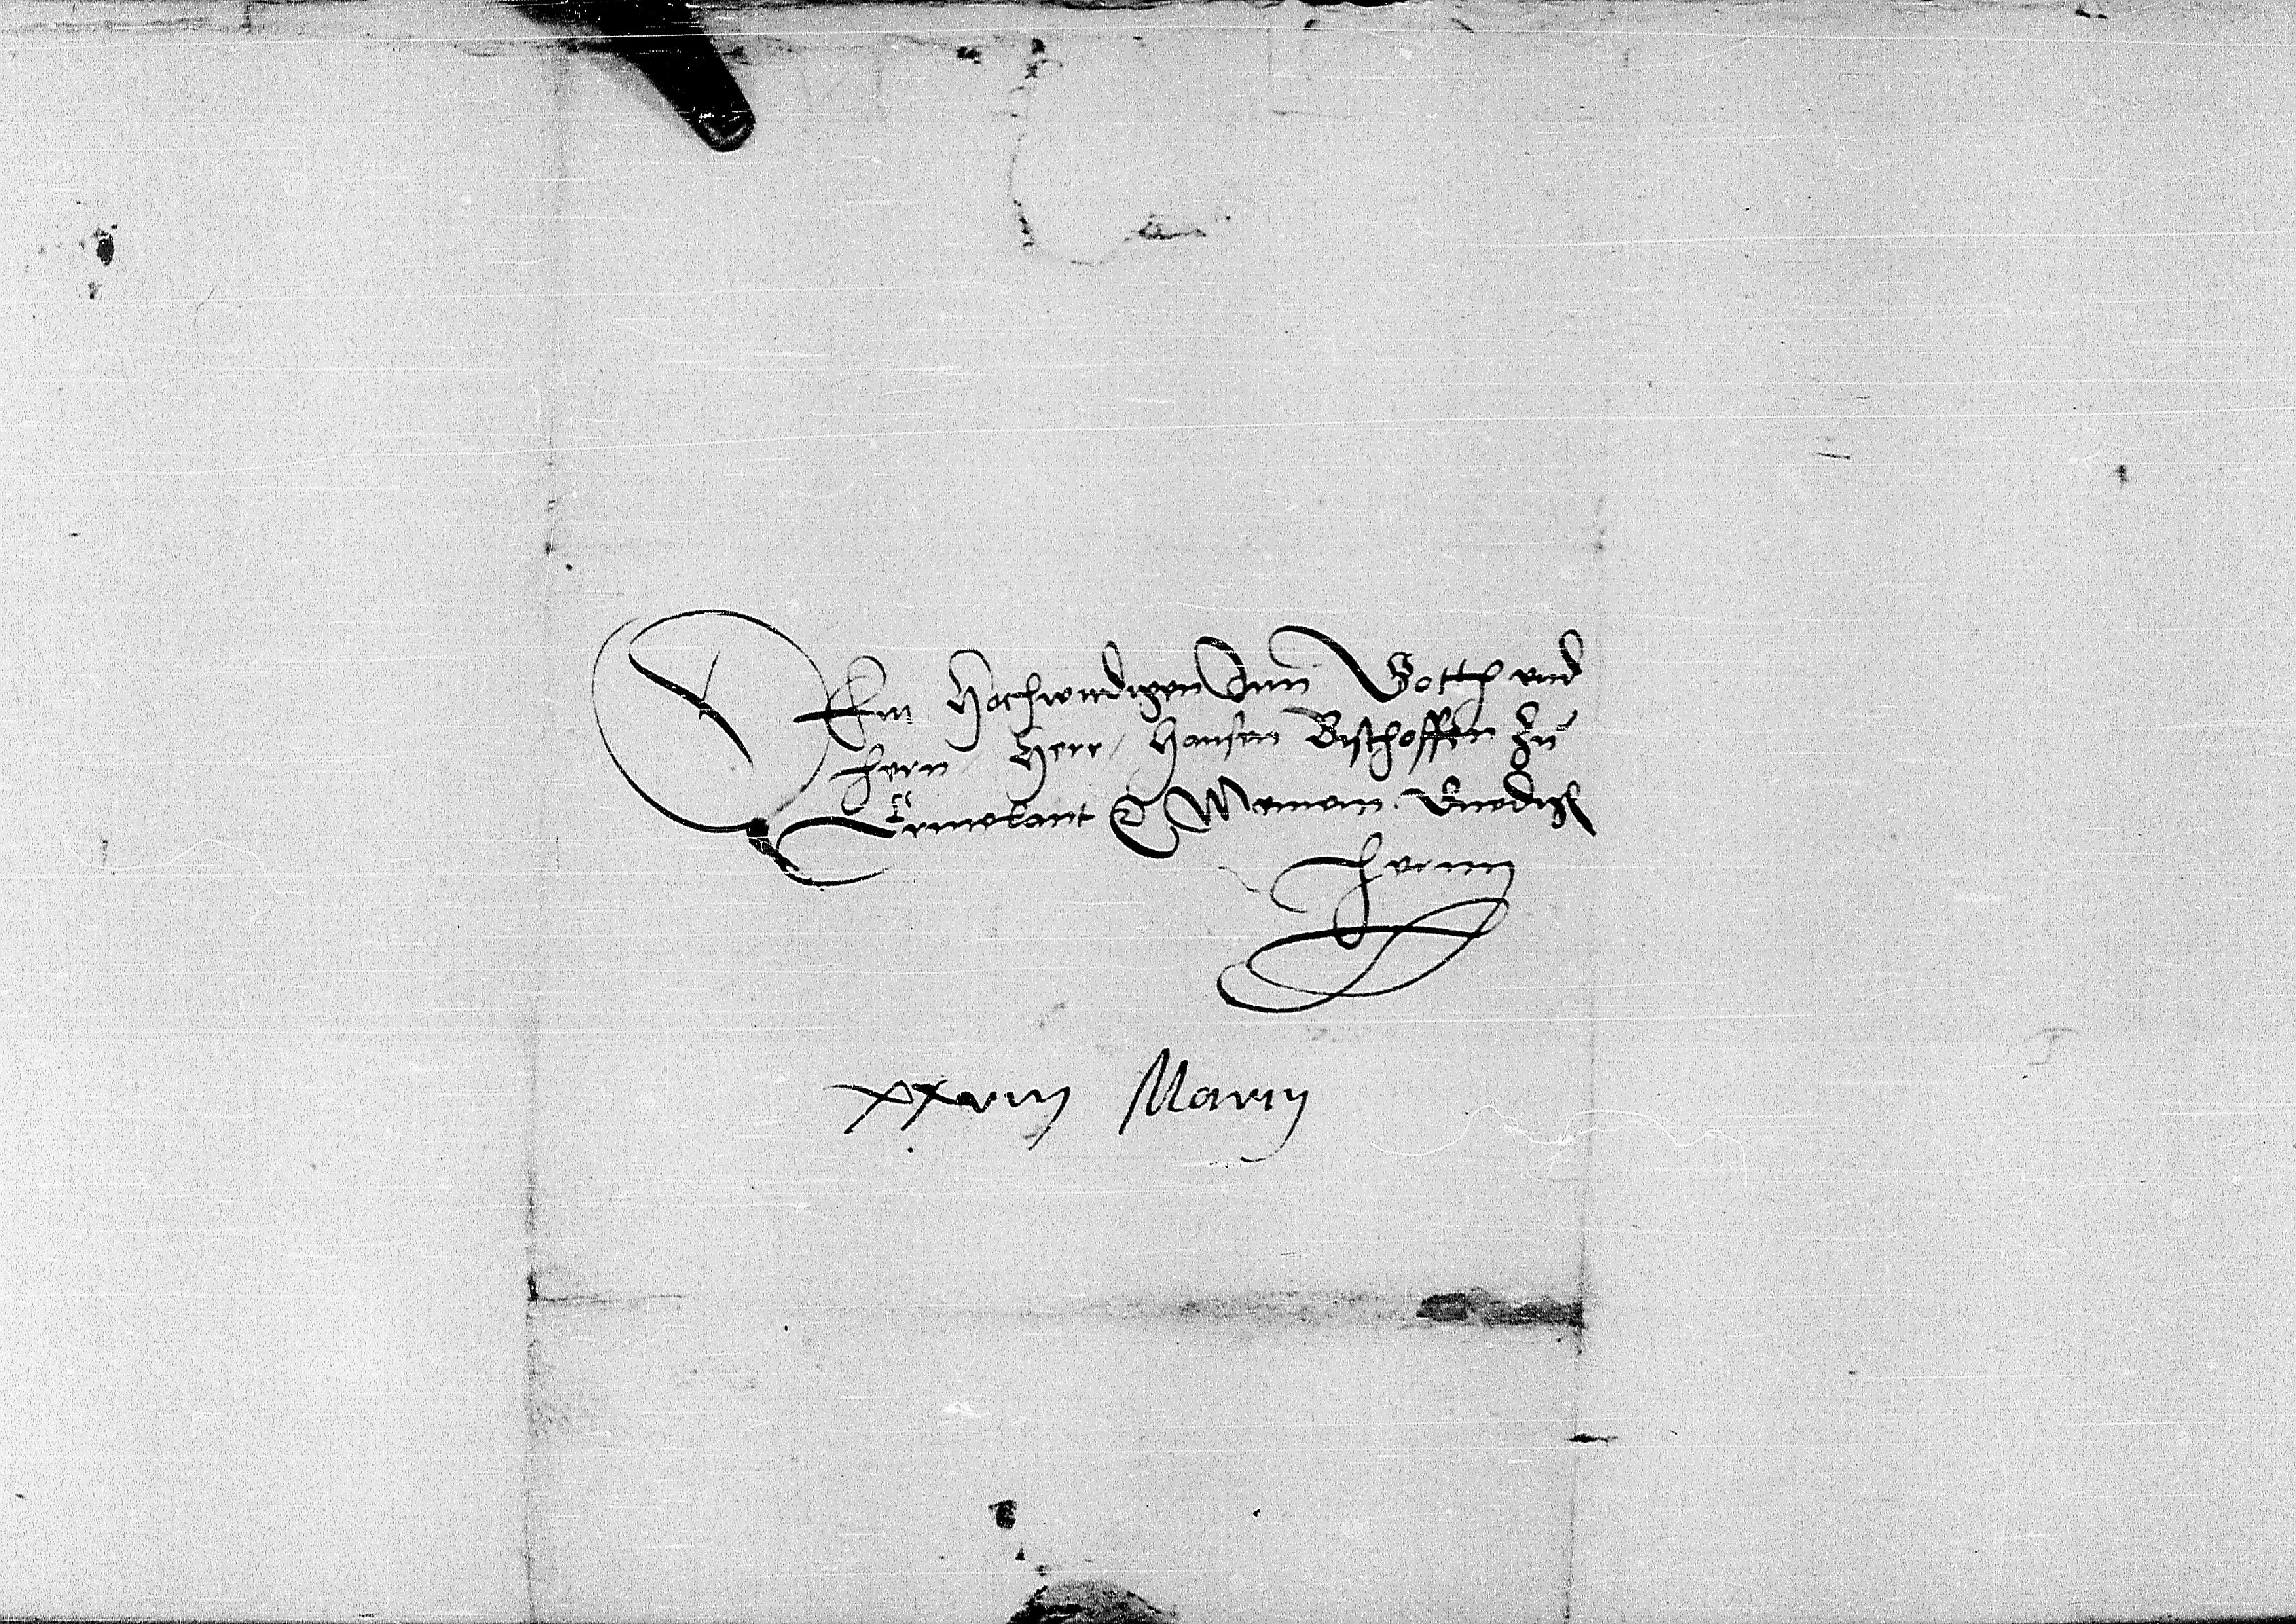 Dem Hochwirdigen Inn Gott und
hern / Herr / Hansen Bischoffen Zu
Ermelant Meinem Gnedigen
hernn
xxviij Marcij